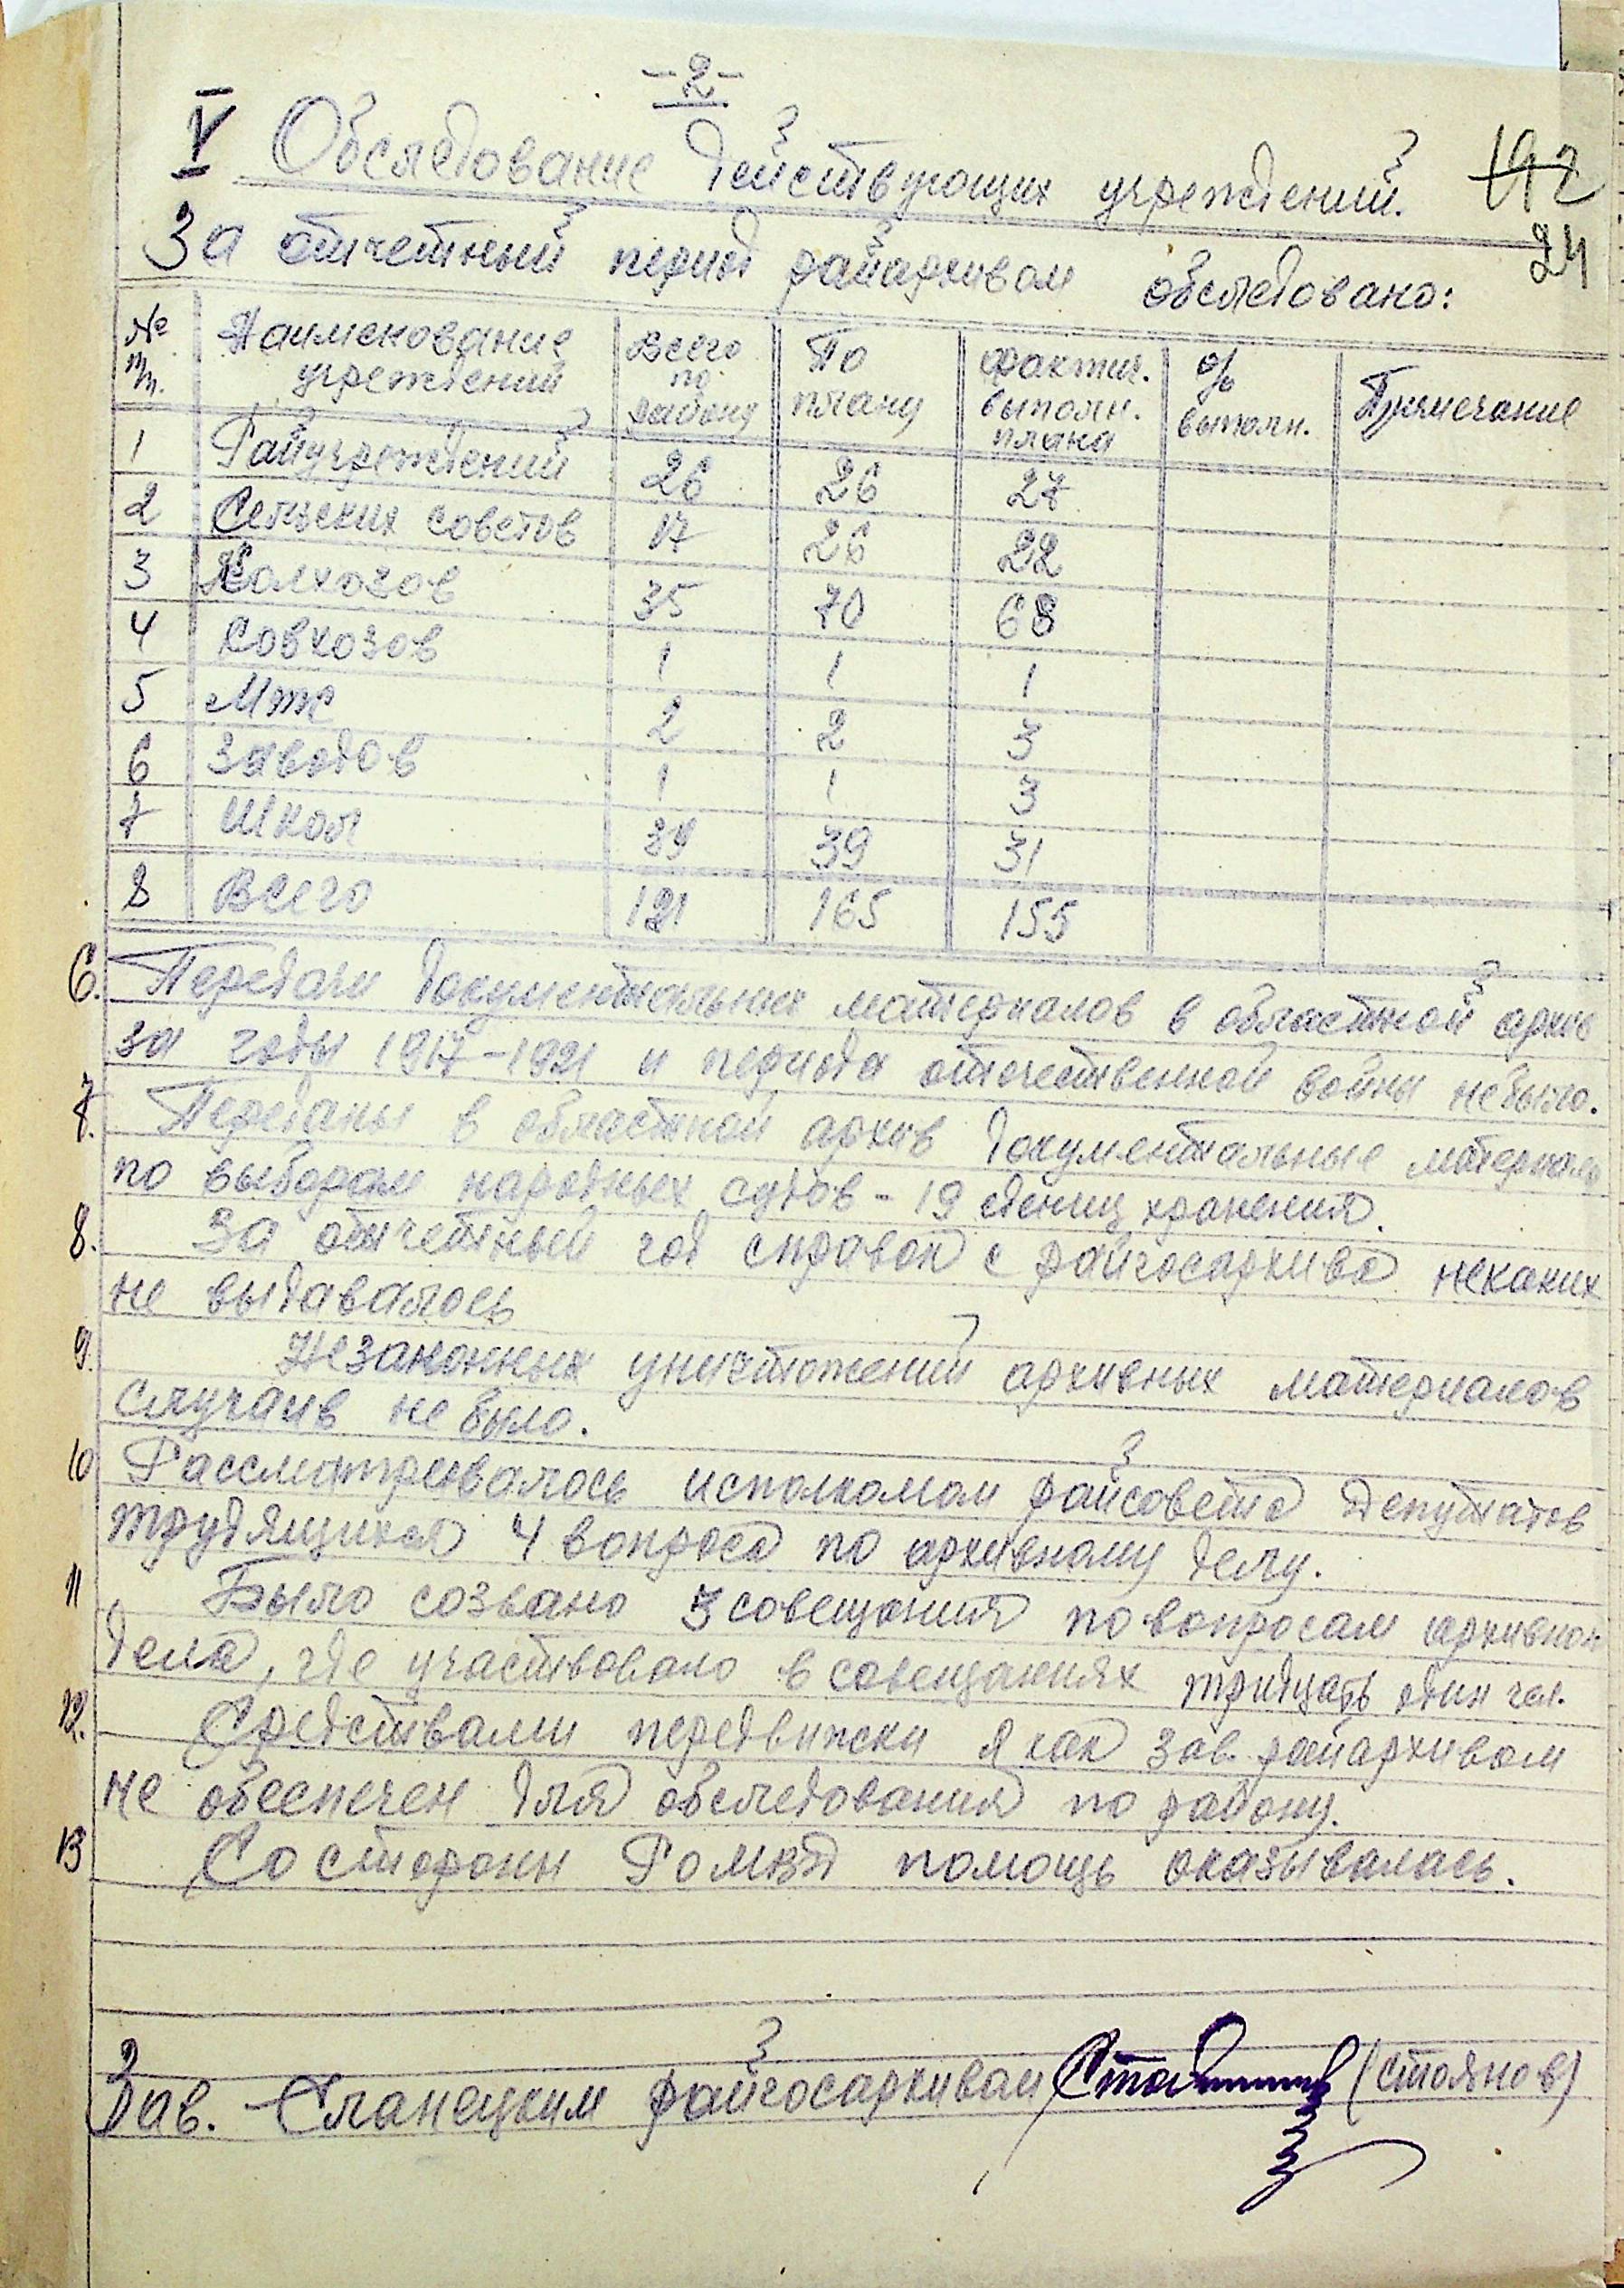 -2-
V Обследование действующих учреждений.
192
24
За отчетный период райархивом обследовано:
№ п/п. | Наименование учреждений | Всего по району | По плану | Фактич. выполн. плана | % выполн. | Примечание
1 | Райучреждений | 26 | 26 | 27
2 | Сельских советов | 17 | 26 | 22
3 | Колхозов | 35 | 70 | 68
4 | Совхозов | 1 | 1 | 1
5 | Мтс | 2 | 2 | 3
6 | Заводов | 1 | 1 | 3
7 | Школ | 39 | 39 | 31
8 | Всего | 121 | 165 | 155
6. Передачи документальных материалов в областной архив
за годы 1917-1921 и периода отечественной войны небыло.
7. Переданы в областной архив документальные материалы
по выборам народных судов - 19 едениц хранения.
8. За отчетный год справок с райгосархива некаких
не выдавалось
9. Незаконных уничтожений архивных материалов
случаив не было.
10 Рассматривалось исполкомом райсовета депутатов
трудящихся 4 вопроса по архивному делу.
11 Было созвано 3 совещания по вопросам архивного
дела, где участвовало в совещаниях тридцать один чел.
12. Средствами передвижски я как зав. райархивом
не обеспечен для обследования по району.
13 Со стороны Ромвд помощь оказывалась.
Зав. Сланецким райгосархивом (Стоянов)